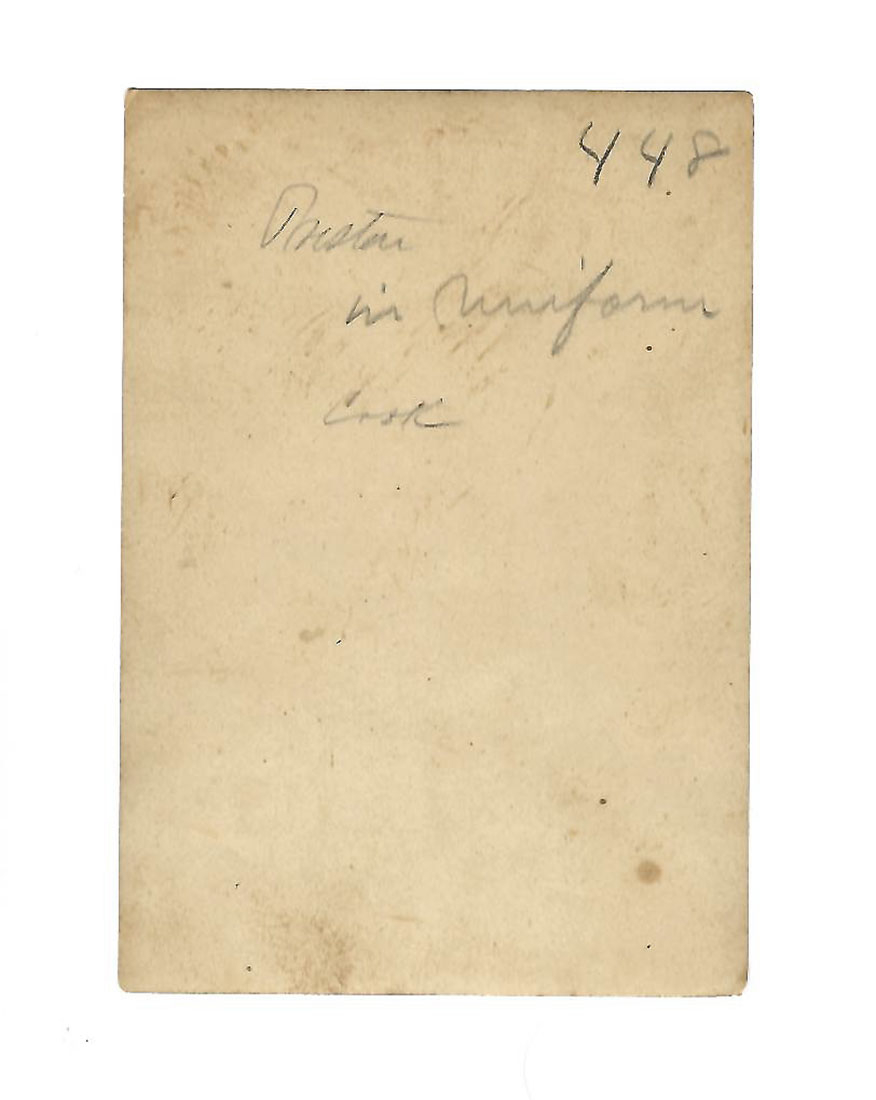 448
Preston
in Uniform
Cook